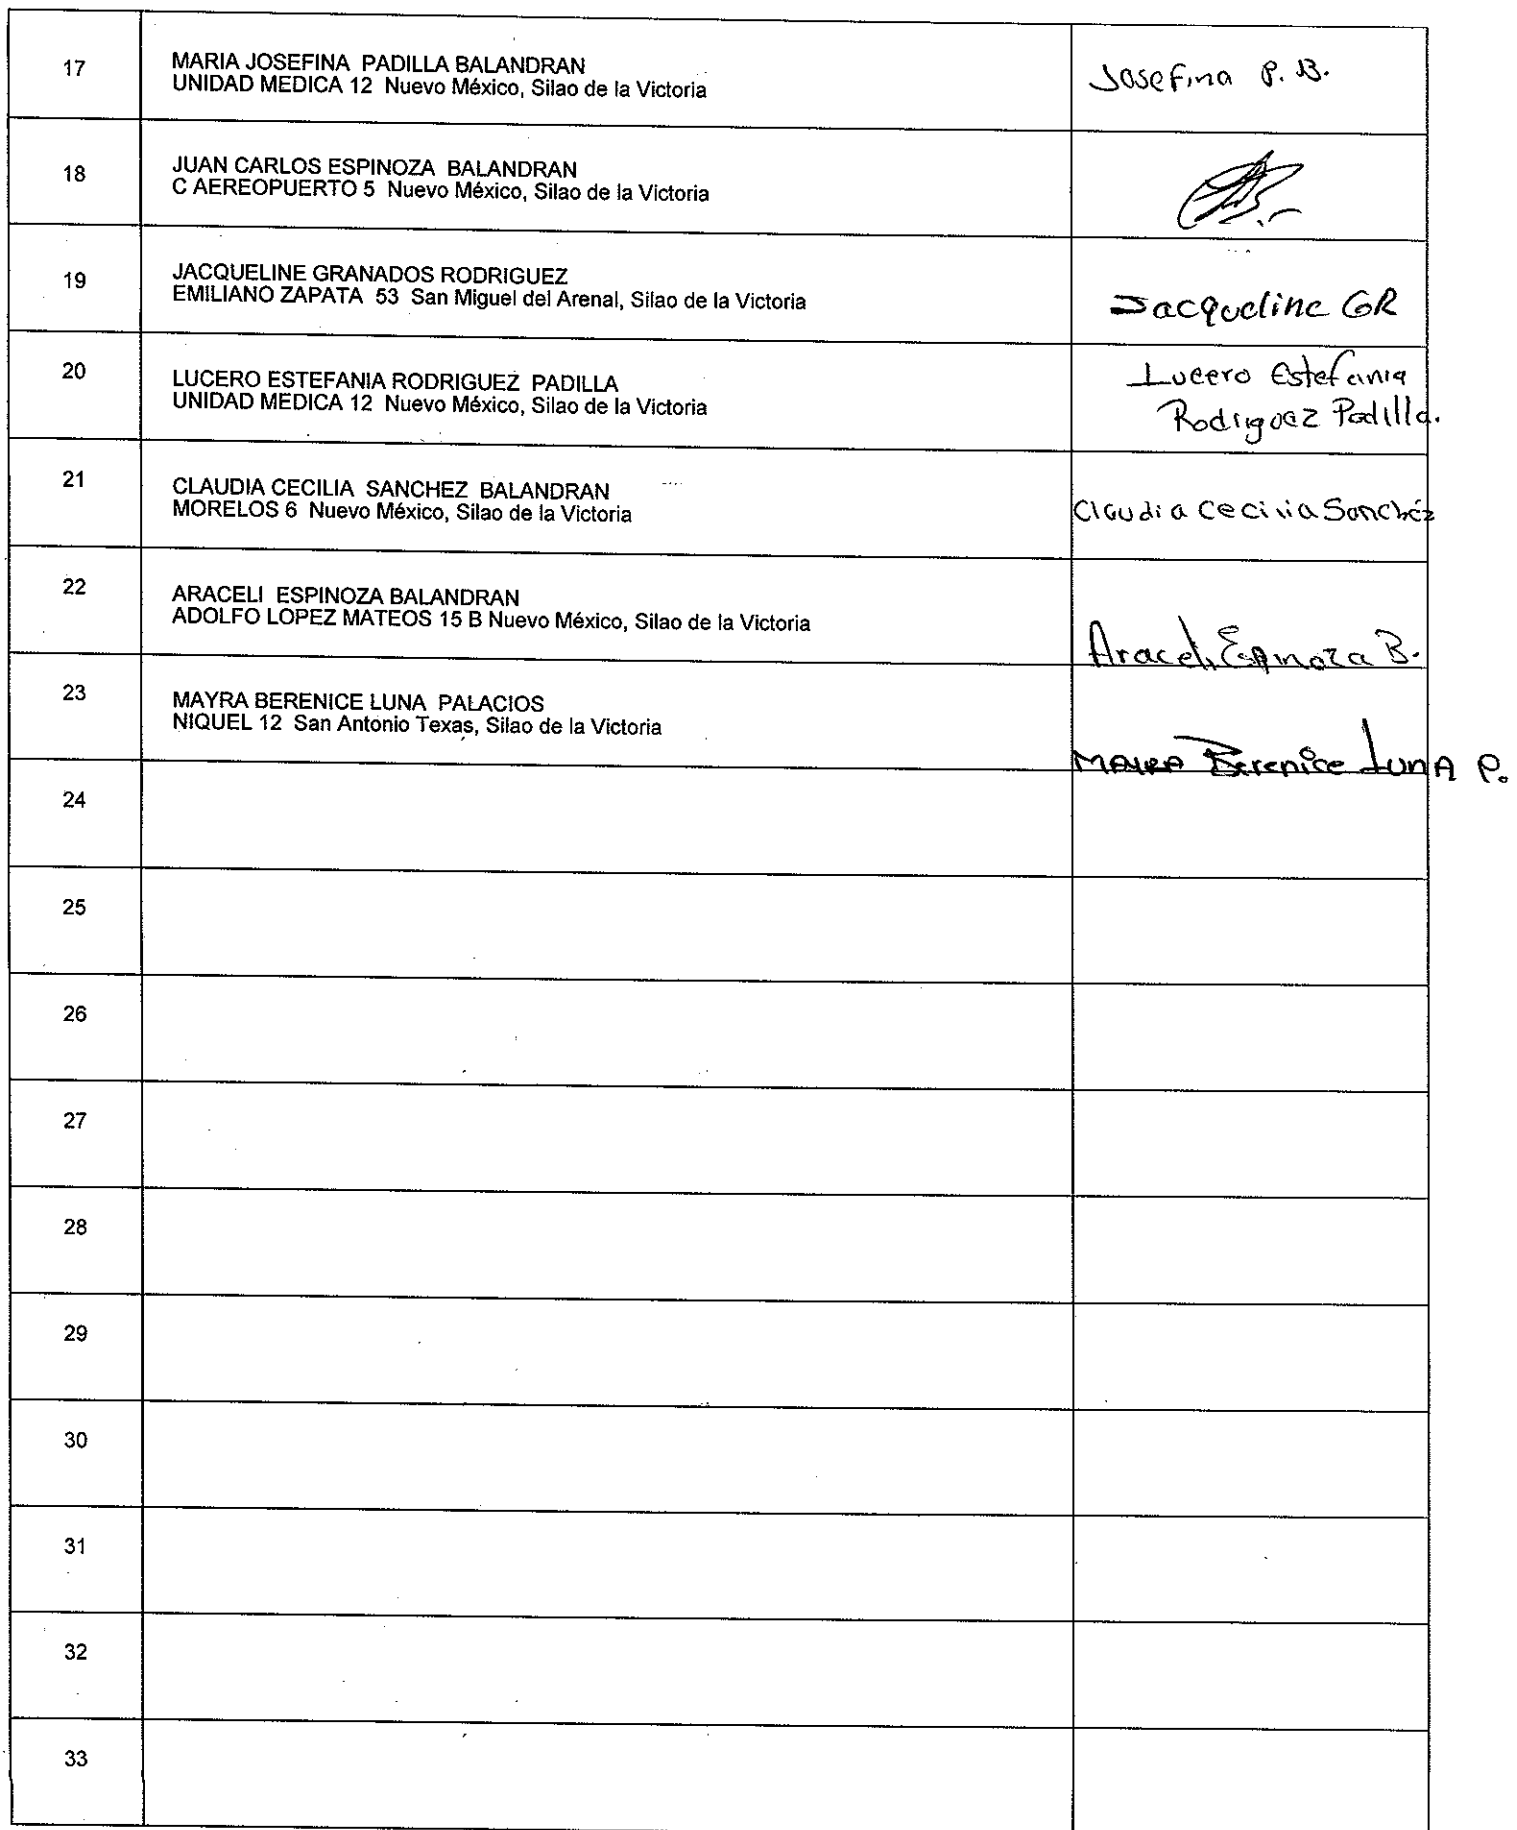 17
MARIA JOSEFINA PADILLA BALANDRAN
UNIDAD MEDICA 12 Nuevo México, Silao de la Victoria
Josefina P. B.
18
JUAN CARLOS ESPINOZA BALANDRAN
C AEREOPUERTO 5 Nuevo México, Silao de la Victoria
19
JACQUELINE GRANADOS RODRIGUEZ
EMILIANO ZAPATA 53 San Miguel del Arenal, Silao de la Victoria
Jacqueline GR
20
LUCERO ESTEFANIA RODRIGUEZ PADILLA
UNIDAD MEDICA 12 Nuevo México, Silao de la Victoria
Lucero Estefania
Rodriguez Padilla.
21
CLAUDIA CECILIA SANCHEZ BALANDRAN
MORELOS 6 Nuevo México, Silao de la Victoria
Claudia Cecilia Sanchéz
22
ARACELI ESPINOZA BALANDRAN
ADOLFO LOPEZ MATEOS 15 B Nuevo México, Silao de la Victoria
Araceli Espinoza B.
23
MAYRA BERENICE LUNA PALACIOS
NIQUEL 12 San Antonio Texas, Silao de la Victoria
MAYRA Berenice LunA P.
24
25
26
27
28
29
30
31
32
33